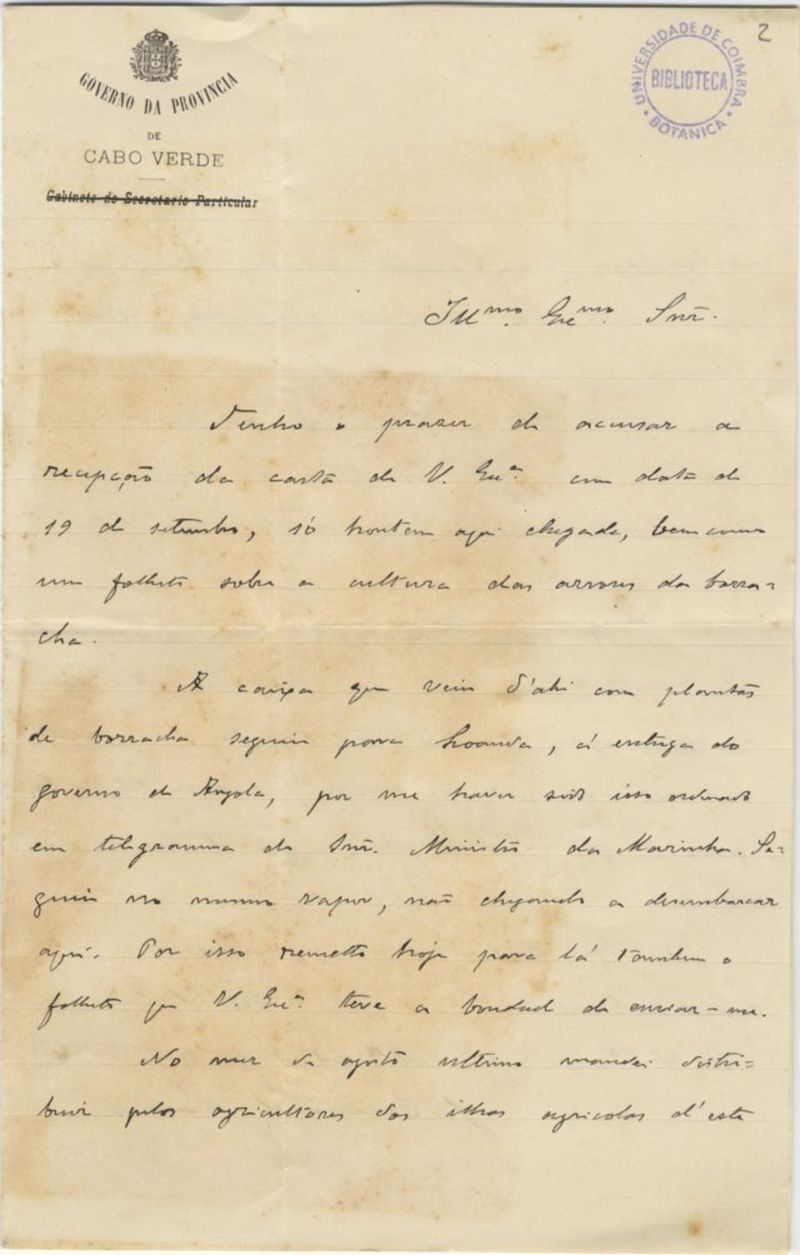 2
UNIVERSIDADE DE COIMBRA
BIBLIOTECA
BOTANICA
GOVERNO DA PROVINCIA
DE
CABO VERDE
Gabinete do Secretario Particular
Illmo. Excmo. Snr.
Tenho o prazer de accusar a
recepção da carta de V. Exca. com data de
19 de setembro, só hontem aqui chegada, bem como
um folheto sobre a cultura das arvores da borra-
cha.
A caixa que vem d'ahi com plantas
de borracha seguiu para Loanda, á entrega do
governo de Angola, por me haver sido isso ordenado
em telegramma do Snr. Ministro da Marinha. Se-
guiu no mesmo vapor, não chegando a desembarcar
aqui. Por isso remetto hoje para lá tambem o
folheto que V. Exca. teve a bondade de enviar-me.
No mez de agosto ultimo mandei distri-
buir pelos agricultores das ilhas agricolas d'esta